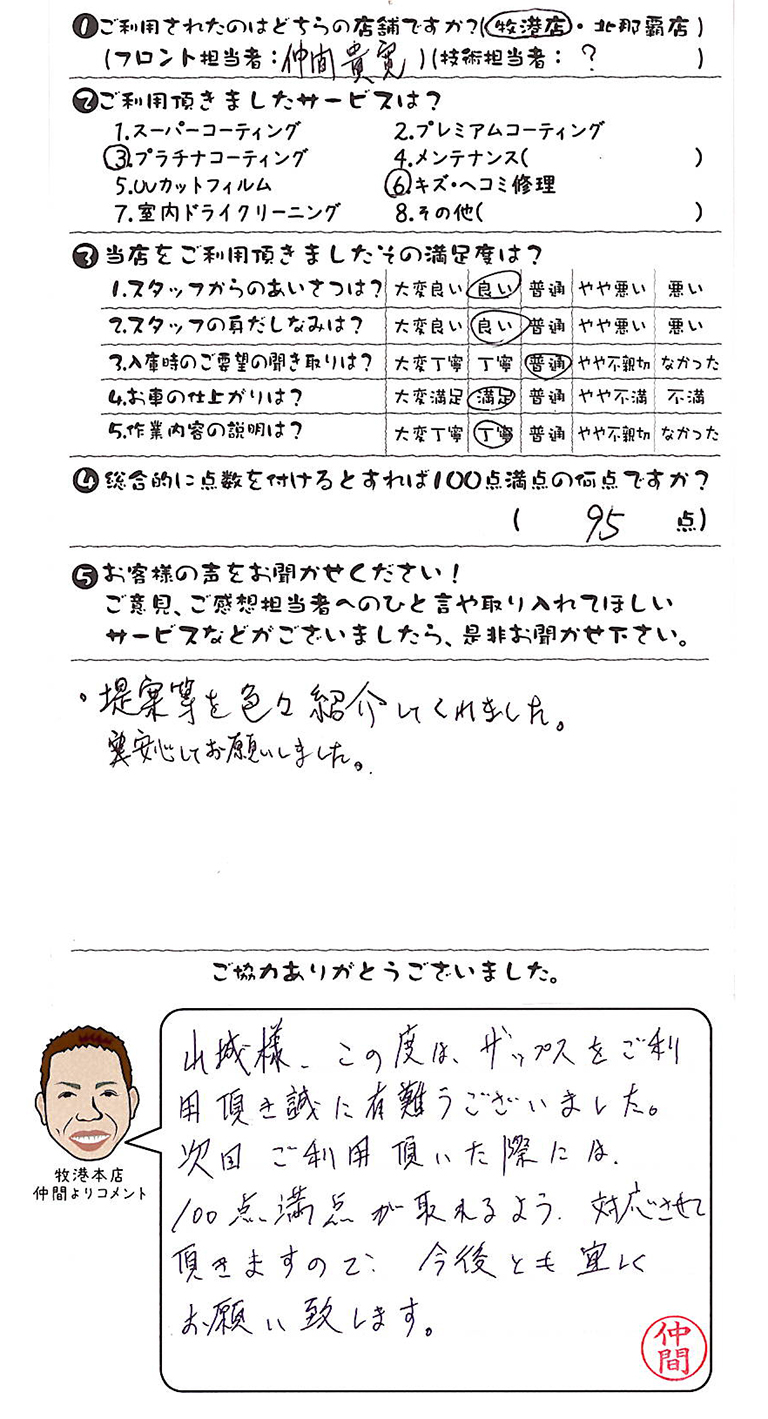 ❶ご利用されたのはどちらの店舗ですか?(牧港店・北那覇店)
(フロント担当者:仲間貴寛)(技術担当者:? )
❷ご利用頂きましたサービスは?
1.スーパーコーティング 2.プレミアムコーティング
3.プラチナコーティング 4.メンテナンス( )
5.UVカットフィルム 6.キズ・ヘコミ修理
7.室内ドライクリーニング 8.その他( )
❸当店をご利用頂きましたその満足度は?
1.スタッフからのあいさつは? 大変良い 良い 普通 やや悪い 悪い
2.スタッフの身だしなみは? 大変良い 良い 普通 やや悪い 悪い
3.入庫時のご要望の聞き取りは? 大変丁寧 丁寧 普通 やや不親切 なかった
4.お車の仕上がりは? 大変満足 満足 普通 やや不満 不満
5.作業内容の説明は? 大変丁寧 丁寧 普通 やや不親切 なかった
❹総合的に点数を付けるとすれば100点満点の何点ですか?
( 95 点)
❺お客様の声をお聞かせください!
ご意見、ご感想担当者へのひと言や取り入れてほしい
サービスなどがございましたら、是非お聞かせ下さい。
・提案等を色々紹介してくれました。
安心してお願いしました。
ご協力ありがとうございました。
山城様、この度は、ザップスをご利
用頂き誠に有難うございました。
次回ご利用頂いた際には、
100点満点が取れるよう、対応させて
頂きますので、今後とも宜しく
お願い致します。
牧港本店
仲間よりコメント
仲間